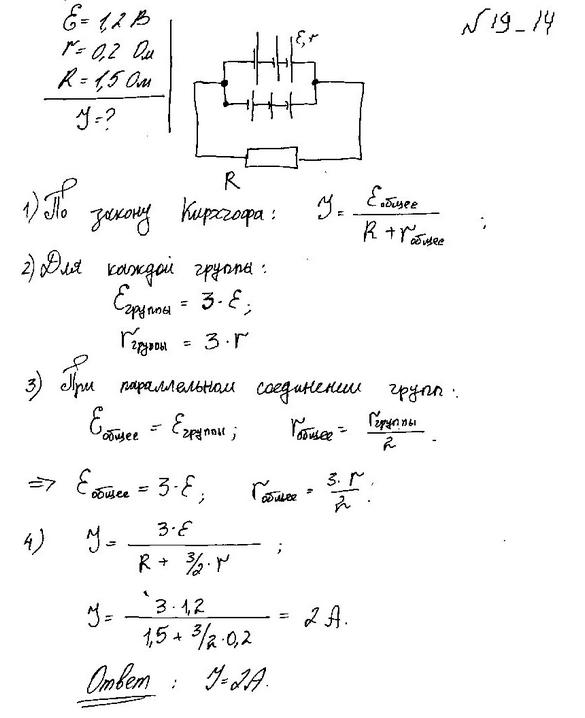 № 19-14
ℰ = 1,2 В
r = 0,2 Ом
R = 1,5 Ом
J = ?
ℰ, r
R
1) По закону Кирхгофа: J = ℰобщее / (R + rобщее) ;
2) Для каждой группы:
ℰгруппы = 3·ℰ;
rгруппы = 3·r
3) При параллельном соединении групп:
ℰобщее = ℰгруппы; rобщее = rгруппы / 2.
=> ℰобщее = 3·ℰ; rобщее = 3·r / 2.
4) J = 3·ℰ / (R + 3/2·r) ;
J = 3·1,2 / (1,5 + 3/2·0,2) = 2 А.
Ответ: J = 2А.